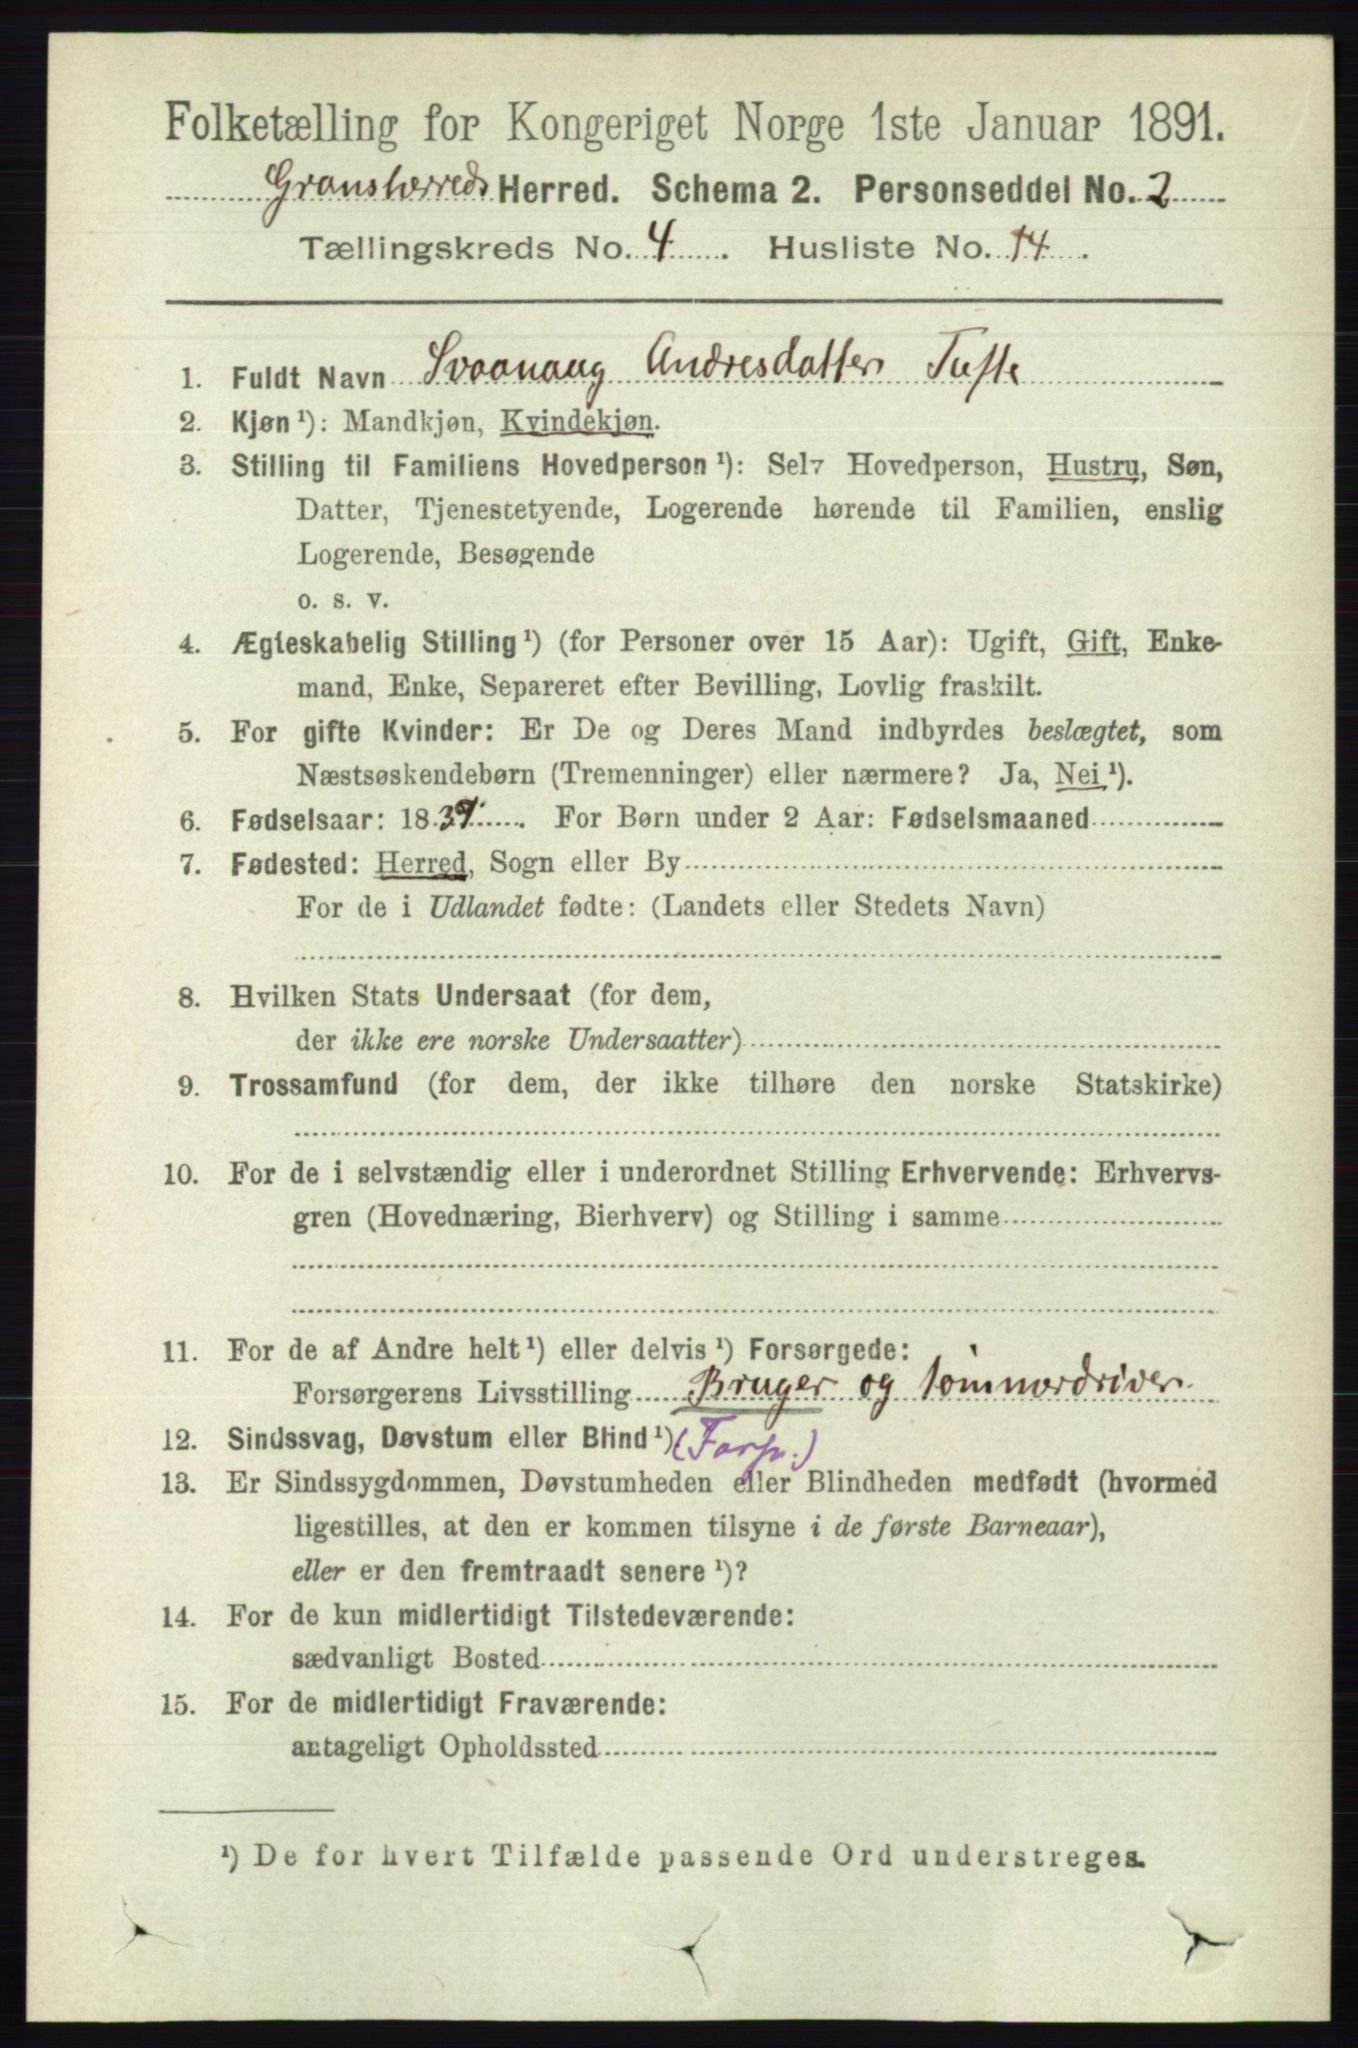 Folketælling for Kongeriget Norge 1ste Januar 1891.
Gransherreds Herred. Schema 2. Personseddel No. 2
Tællingskreds No. 4. Husliste No. 14.
1. Fuldt Navn Svaanaug Andresdatter Tufte
2. Kjøn ¹): Mandkjøn, Kvindekjøn.
3. Stilling til Familiens Hovedperson ¹): Selv Hovedperson, Hustru, Søn,
Datter, Tjenestetyende, Logerende hørende til Familien, enslig
Logerende, Besøgende
o. s. v.
4. Ægteskabelig Stilling ¹) (for Personer over 15 Aar): Ugift, Gift, Enke-
mand, Enke, Separeret efter Bevilling, Lovlig fraskilt.
5. For gifte Kvinder: Er De og Deres Mand indbyrdes beslægtet, som
Næstsøskendebørn (Tremenninger) eller nærmere? Ja, Nei ¹).
6. Fødselsaar: 1839. For Børn under 2 Aar: Fødselsmaaned
7. Fødested: Herred, Sogn eller By
For de i Udlandet fødte: (Landets eller Stedets Navn)
8. Hvilken Stats Undersaat (for dem,
der ikke ere norske Undersaatter)
9. Trossamfund (for dem, der ikke tilhøre den norske Statskirke)
10. For de i selvstændig eller i underordnet Stilling Erhvervende: Erhvervs-
gren (Hovednæring, Bierhverv) og Stilling i samme
11. For de af Andre helt ¹) eller delvis ¹) Forsørgede:
Forsørgerens Livsstilling Bruger og tømmerdriver
12. Sindssvag, Døvstum eller Blind ¹) (Forp.)
13. Er Sindssygdommen, Døvstumheden eller Blindheden medfødt (hvormed
ligestilles, at den er kommen tilsyne i de første Barneaar),
eller er den fremtraadt senere ¹)?
14. For de kun midlertidigt Tilstedeværende:
sædvanligt Bosted
15. For de midlertidigt Fraværende:
antageligt Opholdssted
¹) De for hvert Tilfælde passende Ord understreges.